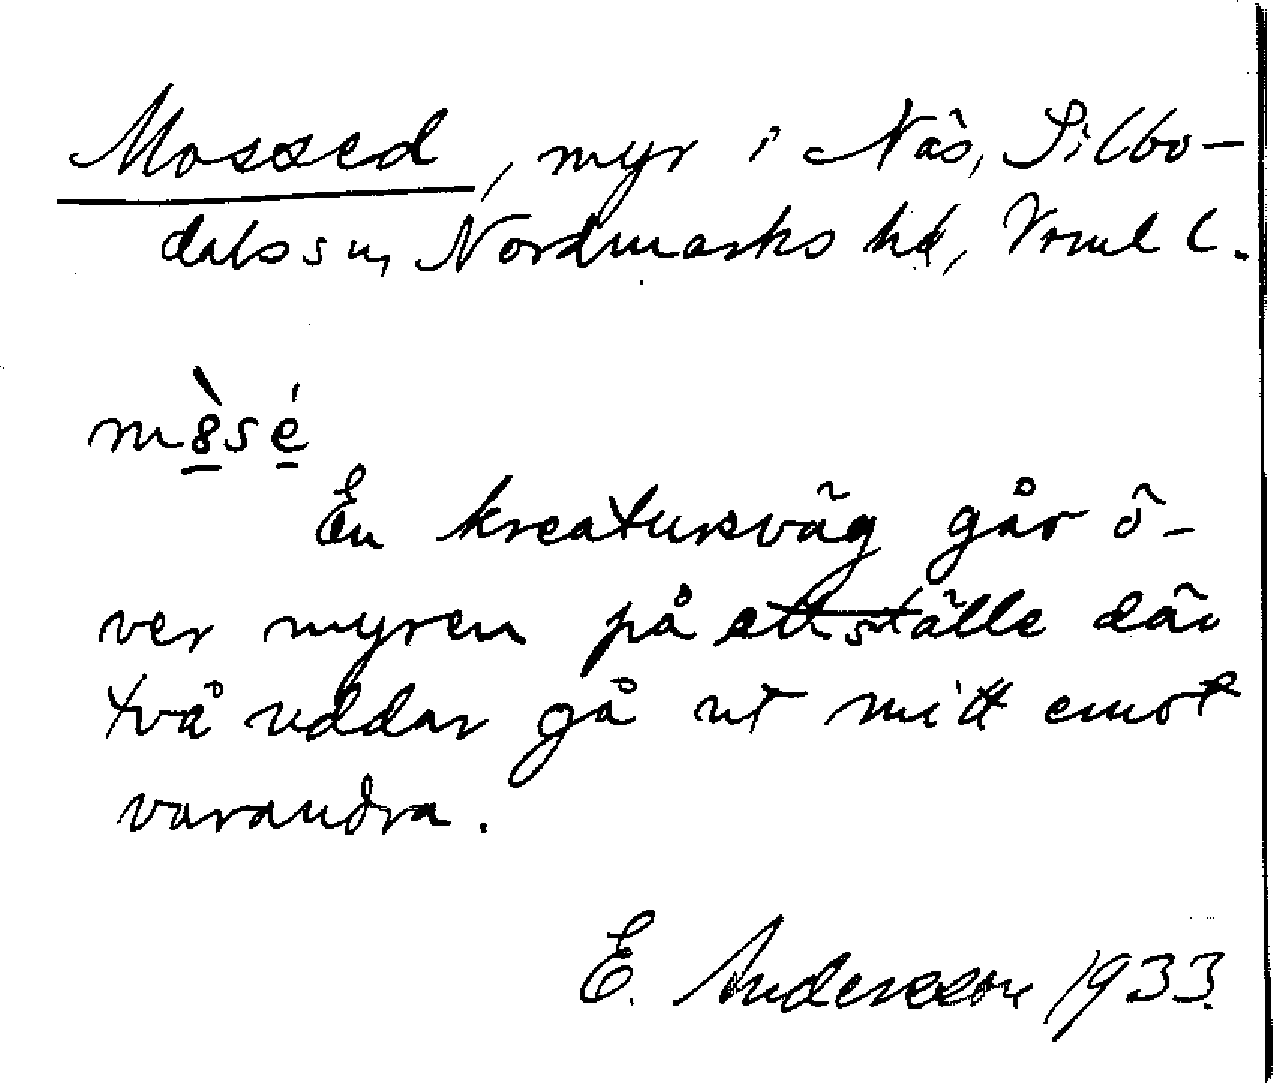 Mossed, myr i Näs, Silbo-
dals sn, Nordmarks hd, Vrml l.
m8̀sé
En kreatursväg går ö-
ver myren på ett ställe där
två uddar gå ut mitt emot
varandra.
E. Andersson 1933.